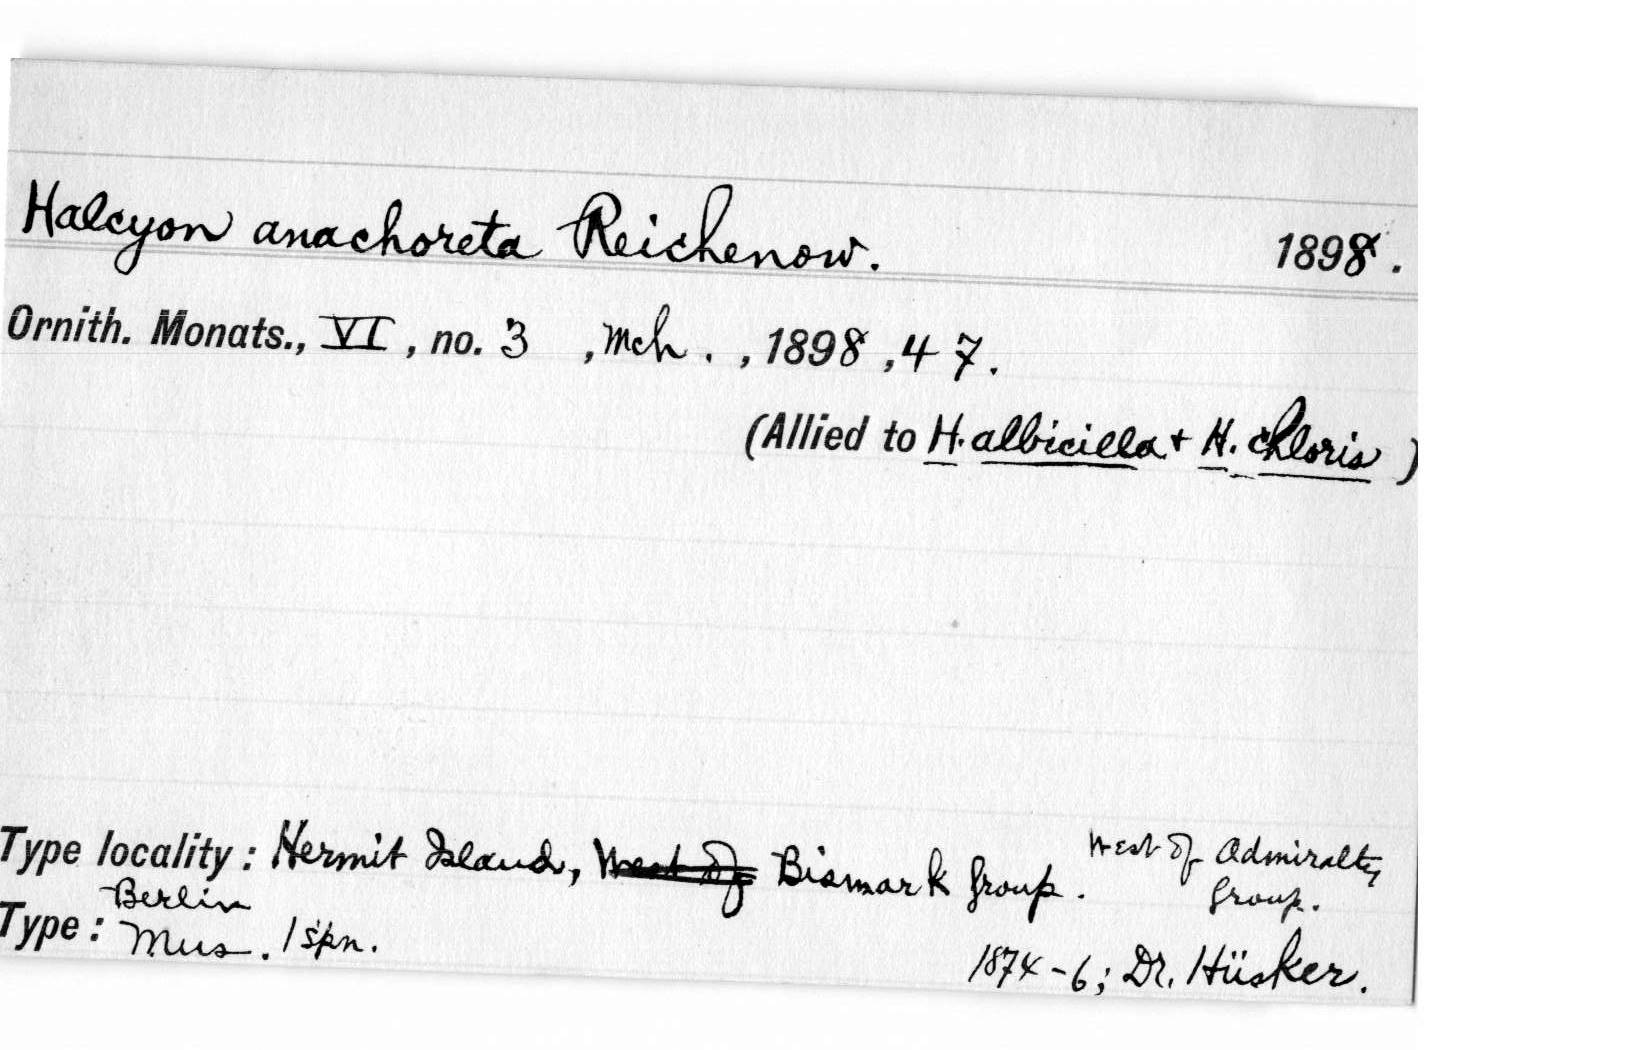 Halcyon anachoreta Reichenow. 1898.
Ornith. Monats., VI, no. 3, Mch., 1898, 47.
(Allied to H. albicilla + H. chloris)
Type locality: Hermit Island, West of Bismark Group. West of Admiralty Group.
Type: Berlin Mus. 1 spn.
1874-6; Dr. Hüsker.